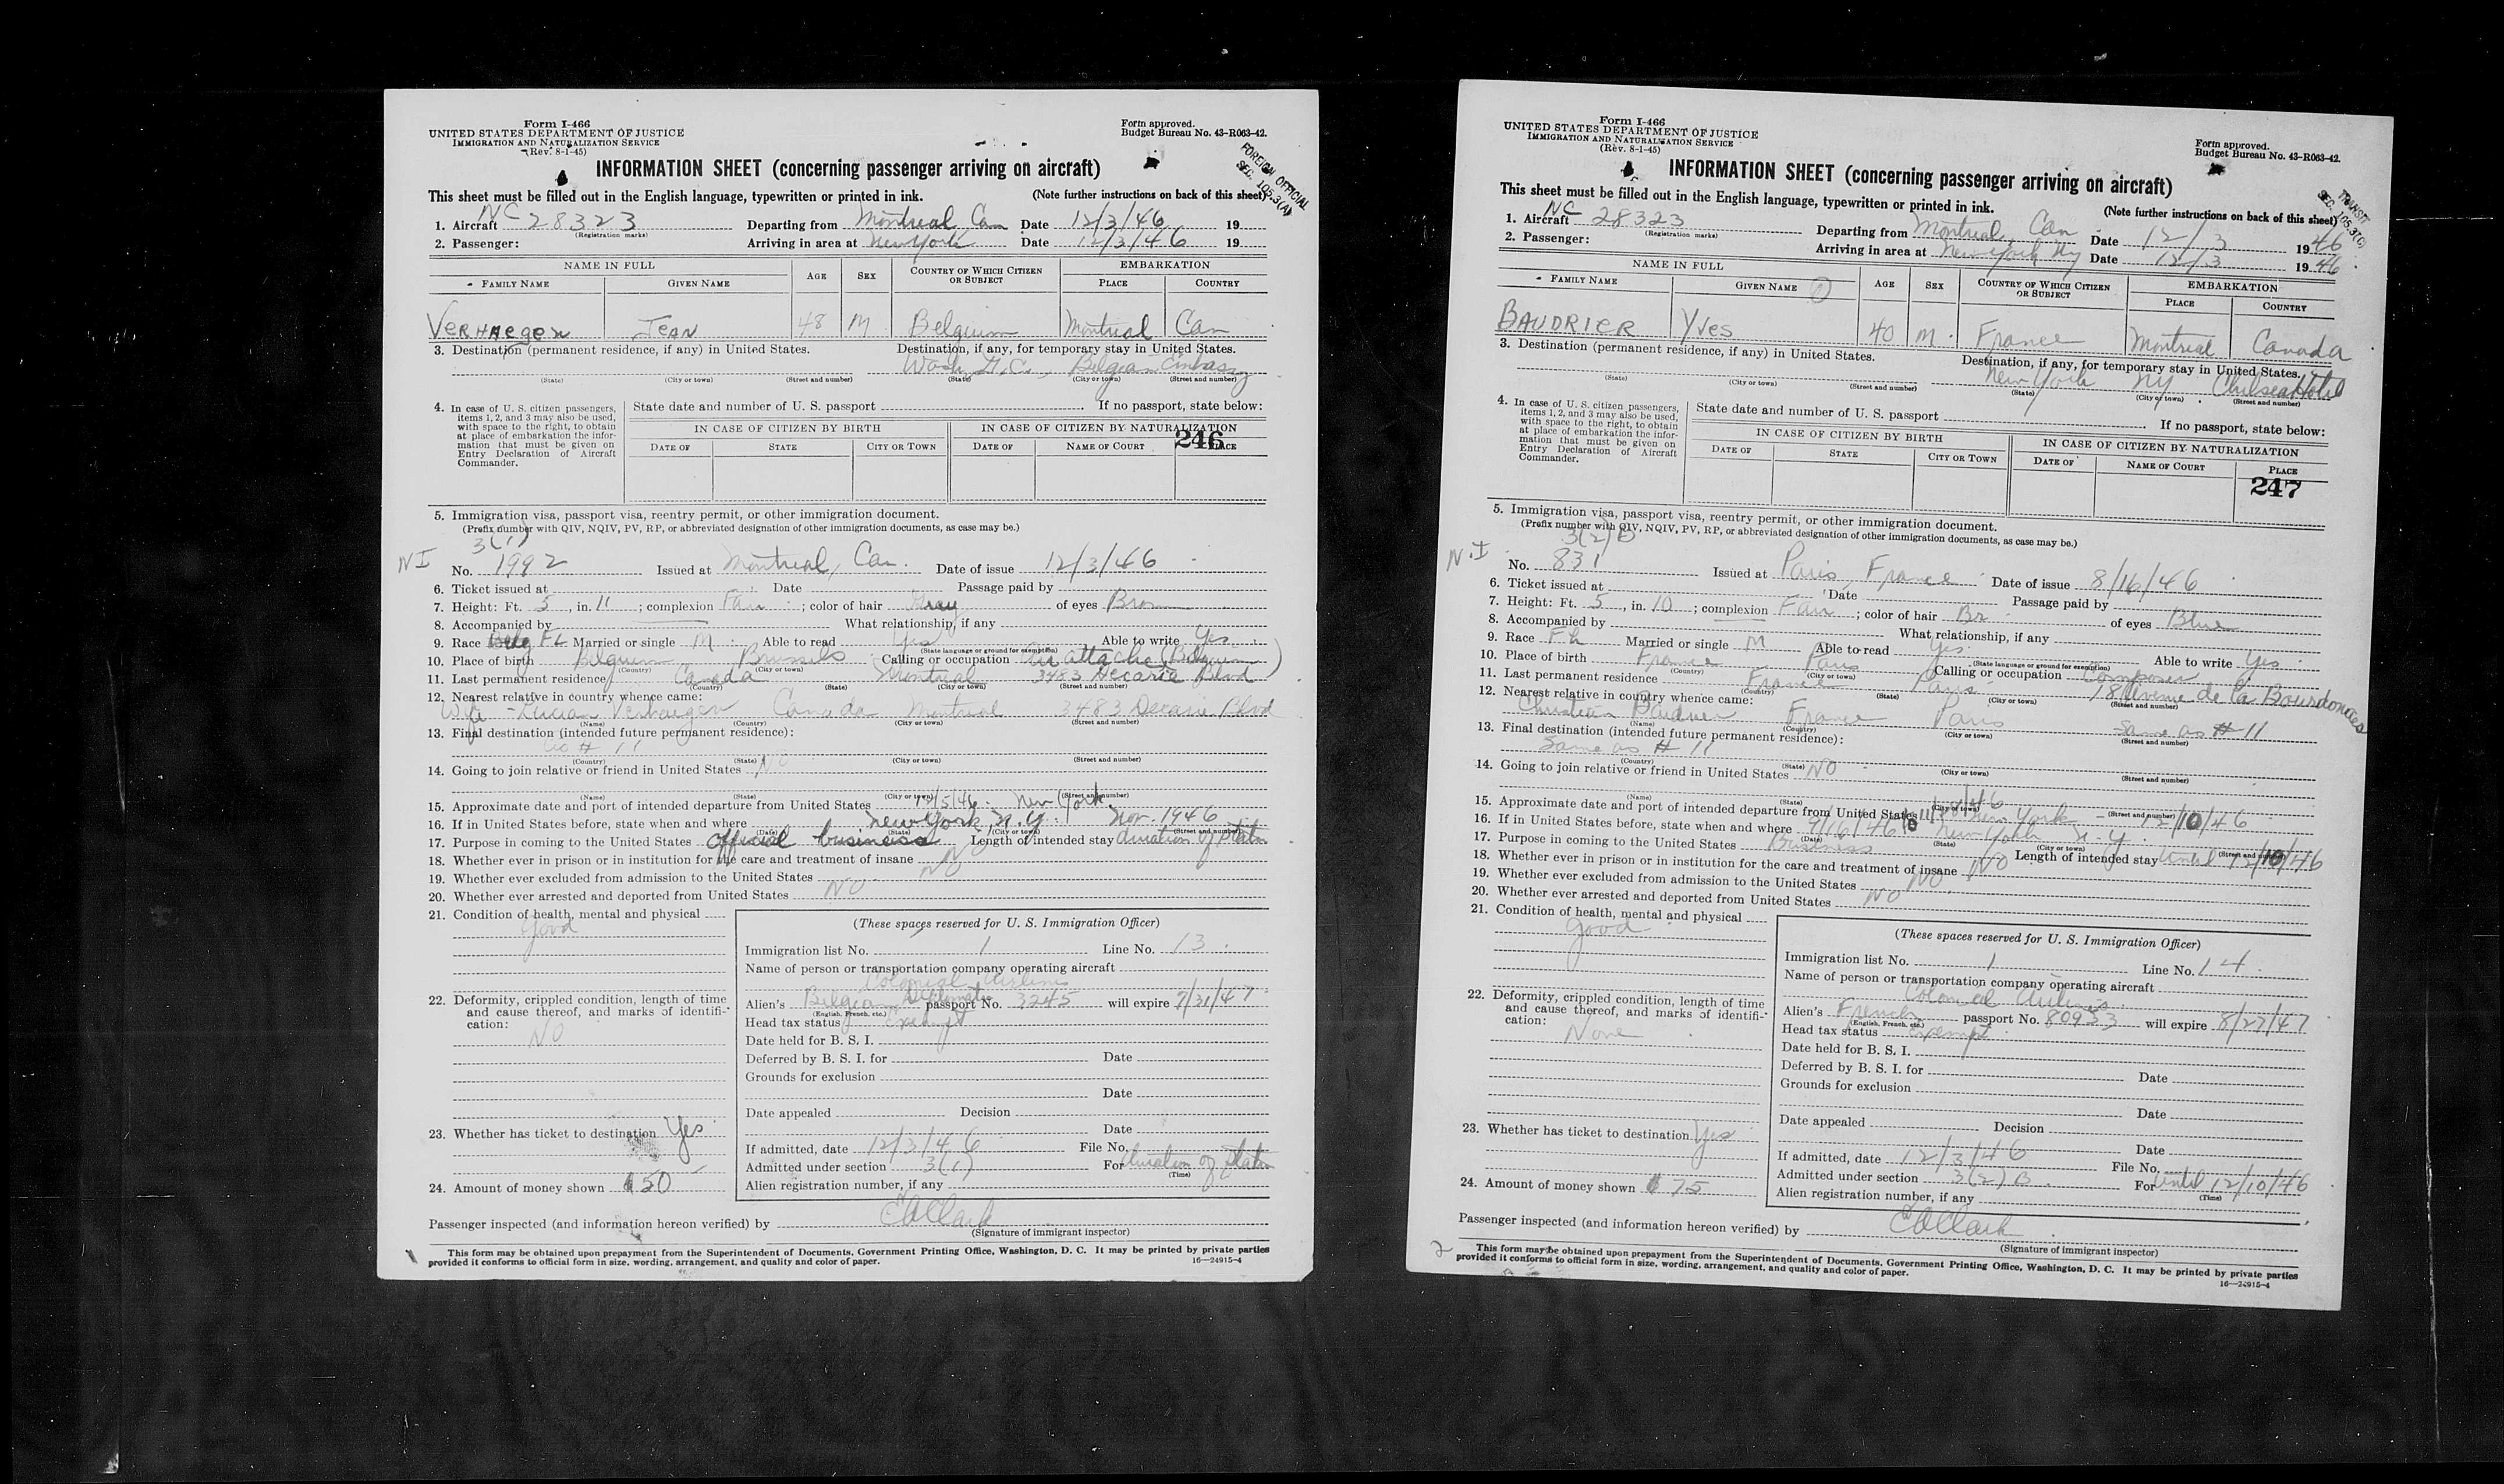 Form I-466
UNITED STATES DEPARTMENT OF JUSTICE
IMMIGRATION AND NATURALIZATION SERVICE
(Rev. 8-1-45)
Form approved.
Budget Bureau No. 43-R063-42.
FOREIGN OFFICIAL
SEC. 105.3(A)
INFORMATION SHEET (concerning passenger arriving on aircraft)
This sheet must be filled out in the English language, typewritten or printed in ink. (Note further instructions on back of this sheet)
1. Aircraft NC 28323 Departing from Montreal, Can Date 12/3/46 19
(Registration marks)
2. Passenger: Arriving in area at New York Date 12/3/46 19
NAME IN FULL AGE SEX COUNTRY OF WHICH CITIZEN OR SUBJECT EMBARKATION
FAMILY NAME GIVEN NAME PLACE COUNTRY
VERHAEGEN JEAN 48 M Belgium Montreal Can
3. Destination (permanent residence, if any) in United States. Destination, if any, for temporary stay in United States.
Wash, D.C., Belgian Embassy
(State) (City or town) (Street and number) (State) (City or town) (Street and number)
4. In case of U. S. citizen passengers, items 1, 2, and 3 may also be used, with space to the right, to obtain at place of embarkation the information that must be given on Entry Declaration of Aircraft Commander.
State date and number of U. S. passport If no passport, state below:
IN CASE OF CITIZEN BY BIRTH IN CASE OF CITIZEN BY NATURALIZATION
246
DATE OF STATE CITY OR TOWN DATE OF NAME OF COURT PLACE
5. Immigration visa, passport visa, reentry permit, or other immigration document.
(Prefix number with QIV, NQIV, PV, RP, or abbreviated designation of other immigration documents, as case may be.)
3(1)
NI No. 1992 Issued at Montreal, Can. Date of issue 12/3/46
6. Ticket issued at Date Passage paid by
7. Height: Ft. 5, in. 11; complexion Fair; color of hair Gray of eyes Brown
8. Accompanied by What relationship, if any
9. Race FL Married or single M Able to read Yes Able to write Yes
(State language or ground for exemption)
10. Place of birth Belgium Brussels Calling or occupation Air attache (Belgium)
(Country) (City or town)
11. Last permanent residence Canada Montreal 3483 Decarie Blvd
(Country) (State) (City or town) (Street and number)
12. Nearest relative in country whence came:
Wife - Lucian Verhaegen Canada Montreal 3483 Decarie Blvd
(Name) (Country) (City or town) (Street and number)
13. Final destination (intended future permanent residence):
as # 11
(Country) (State) (City or town) (Street and number)
14. Going to join relative or friend in United States No
(Name) (State) (City or town) (Street and number)
15. Approximate date and port of intended departure from United States 12/5/46. New York
16. If in United States before, state when and where New York, N.Y. Nov. 1946
(Date) (State) (City or town) (Street and number)
17. Purpose in coming to the United States Official business Length of intended stay duration of status
18. Whether ever in prison or in institution for the care and treatment of insane No
19. Whether ever excluded from admission to the United States No
20. Whether ever arrested and deported from United States No
21. Condition of health, mental and physical
good
22. Deformity, crippled condition, length of time and cause thereof, and marks of identification:
No
23. Whether has ticket to destination Yes
24. Amount of money shown $50
(These spaces reserved for U. S. Immigration Officer)
Immigration list No. 1 Line No. 13
Name of person or transportation company operating aircraft
Colonial Airlines
Alien's Belgian Diplomatic passport No. 3245 will expire 7/31/47
(English, French, etc.)
Head tax status Exempt
Date held for B. S. I.
Deferred by B. S. I. for Date
Grounds for exclusion
Date
Date appealed Decision
Date
If admitted, date 12/3/46 File No.
Admitted under section 3(1) For duration of status
(Time)
Alien registration number, if any
Passenger inspected (and information hereon verified) by CAClark
(Signature of immigrant inspector)
This form may be obtained upon prepayment from the Superintendent of Documents, Government Printing Office, Washington, D. C. It may be printed by private parties
provided it conforms to official form in size, wording, arrangement, and quality and color of paper. 16—24915-4
Form I-466
UNITED STATES DEPARTMENT OF JUSTICE
IMMIGRATION AND NATURALIZATION SERVICE
(Rev. 8-1-45)
Form approved.
Budget Bureau No. 43-R063-42.
TRANSIT
SEC. 105.3(C)
INFORMATION SHEET (concerning passenger arriving on aircraft)
This sheet must be filled out in the English language, typewritten or printed in ink. (Note further instructions on back of this sheet)
1. Aircraft NC 28323 Departing from Montreal, Can Date 12/3 1946
(Registration marks)
2. Passenger: Arriving in area at New York Ny Date 12/3 1946
NAME IN FULL AGE SEX COUNTRY OF WHICH CITIZEN OR SUBJECT EMBARKATION
FAMILY NAME GIVEN NAME PLACE COUNTRY
BAUDRIER Yves 40 M France Montreal Canada
3. Destination (permanent residence, if any) in United States. Destination, if any, for temporary stay in United States.
New York Ny Chelsea Hotel
(State) (City or town) (Street and number) (State) (City or town) (Street and number)
4. In case of U. S. citizen passengers, items 1, 2, and 3 may also be used, with space to the right, to obtain at place of embarkation the information that must be given on Entry Declaration of Aircraft Commander.
State date and number of U. S. passport If no passport, state below:
IN CASE OF CITIZEN BY BIRTH IN CASE OF CITIZEN BY NATURALIZATION
DATE OF STATE CITY OR TOWN DATE OF NAME OF COURT PLACE
247
5. Immigration visa, passport visa, reentry permit, or other immigration document.
(Prefix number with QIV, NQIV, PV, RP, or abbreviated designation of other immigration documents, as case may be.)
3(2)B
N.I No. 831 Issued at Paris, France Date of issue 8/16/46
6. Ticket issued at Date Passage paid by
7. Height: Ft. 5, in. 10; complexion Fair; color of hair Br of eyes Blue
8. Accompanied by What relationship, if any
9. Race Fh Married or single M Able to read Yes Able to write Yes
(State language or ground for exemption)
10. Place of birth France Paris Calling or occupation Composer
(Country) (City or town)
11. Last permanent residence France Paris 18 Avenue de la Bourdonnais
(Country) (State) (City or town) (Street and number)
12. Nearest relative in country whence came:
Baudrier France Paris Same as # 11
(Name) (Country) (City or town) (Street and number)
13. Final destination (intended future permanent residence):
Same as # 11
(Country) (State) (City or town) (Street and number)
14. Going to join relative or friend in United States No
(Name) (State) (City or town) (Street and number)
15. Approximate date and port of intended departure from United States New York 12/10/46
16. If in United States before, state when and where 9/16/46 to 11/ /46 New York N.Y.
(Date) (State) (City or town) (Street and number)
17. Purpose in coming to the United States Business Length of intended stay Until 12/10/46
18. Whether ever in prison or in institution for the care and treatment of insane No
19. Whether ever excluded from admission to the United States No
20. Whether ever arrested and deported from United States No
21. Condition of health, mental and physical
good
22. Deformity, crippled condition, length of time and cause thereof, and marks of identification:
None
23. Whether has ticket to destination Yes
24. Amount of money shown $75
(These spaces reserved for U. S. Immigration Officer)
Immigration list No. 1 Line No. 14
Name of person or transportation company operating aircraft
Colonial Airlines
Alien's French passport No. 80953 will expire 8/27/47
(English, French, etc.)
Head tax status exempt
Date held for B. S. I.
Deferred by B. S. I. for Date
Grounds for exclusion
Date
Date appealed Decision
Date
If admitted, date 12/3/46 File No.
Admitted under section 3(2)B For Until 12/10/46
(Time)
Alien registration number, if any
Passenger inspected (and information hereon verified) by CAClark
(Signature of immigrant inspector)
2
This form may be obtained upon prepayment from the Superintendent of Documents, Government Printing Office, Washington, D. C. It may be printed by private parties
provided it conforms to official form in size, wording, arrangement, and quality and color of paper. 16—24915-4